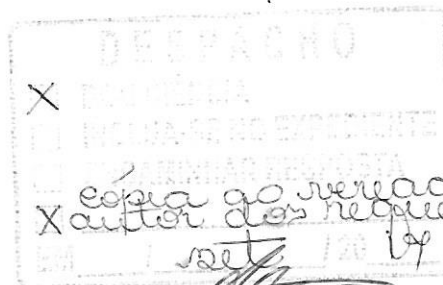 DESPACHO
X DOU CIÊNCIA
INCLUA-SE NO EXPEDIENTE
cópia ao veread
X autor dos reque
/ set / 20 17